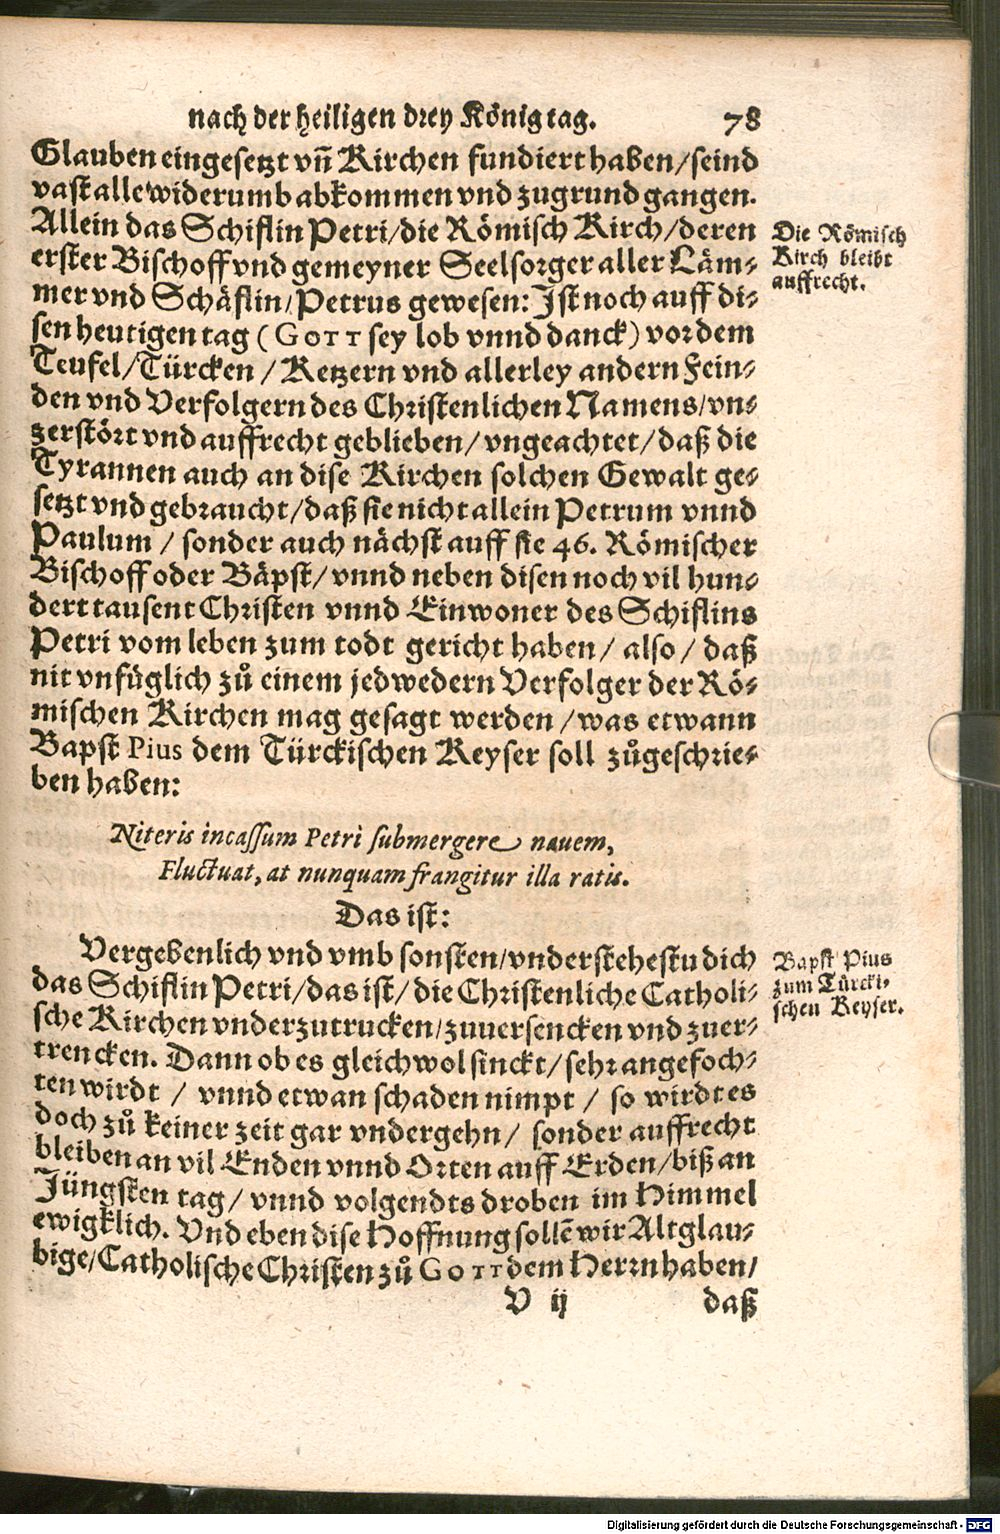 nach der heiligen drey König tag. 78
Glauben eingesetzt vnn̄ Kirchen fundiert haben/seind
vast alle widerumb abkommen vnd zugrund gangen.
Allein das Schiflin Petri/die Römisch Kirch/deren
erster Bischoff vnd gemeyner Seelsorger aller Läm⸗
mer vnd Schäflin/Petrus gewesen: Ist noch auff di⸗
sen heutigen tag (GOTT sey lob vnnd danck) vor dem
Teufel/Türcken / Ketzern vnd allerley andern Fein⸗
den vnd Verfolgern des Christenlichen Namens/vn⸗
zerstört vnd auffrecht geblieben/vngeachtet/daß die
Tyrannen auch an dise Kirchen solchen Gewalt ge⸗
setzt vnd gebraucht/daß sie nicht allein Petrum vnnd
Paulum / sonder auch nächst auff sie 46. Römischer
Bischoff oder Bäpst/vnnd neben disen noch vil hun⸗
dert tausent Christen vnnd Einwoner des Schiflins
Petri vom leben zum todt gericht haben/ also/ daß
nit vnfüglich zů einem jedwedern Verfolger der Rö⸗
mischen Kirchen mag gesagt werden /was etwann
Bapst Pius dem Türckischen Keyser soll zůgeschrie⸗
ben haben:
Die Römisch
Kirch bleibt
auffrecht.
Niteris incassum Petri submergere nauem,
Fluctuat, at nunquam frangitur illa ratis.
Das ist:
Vergebenlich vnd vmb sonsten/vnderstehestu dich
das Schiflin Petri/das ist/die Christenliche Catholi⸗
sche Kirchen vnderzutrucken/zuuersencken vnd zuer⸗
trencken. Dann ob es gleichwol sinckt/sehr angefoch⸗
ten wirdt / vnnd etwan schaden nimpt / so wirdt es
doch zů keiner zeit gar vndergehn/ sonder auffrecht
bleiben an vil Enden vnnd Orten auff Erden/biß an
Jüngsten tag/ vnnd volgendts droben im Himmel
ewigklich. Vnd eben dise Hoffnung sollē wir Altglau⸗
bige/Catholische Christen zů GOTT dem Herrn haben/
Bapst Pius
zum Türcki⸗
schen Keyser.
V ij daß
Digitalisierung gefördert durch die Deutsche Forschungsgemeinschaft - DFG